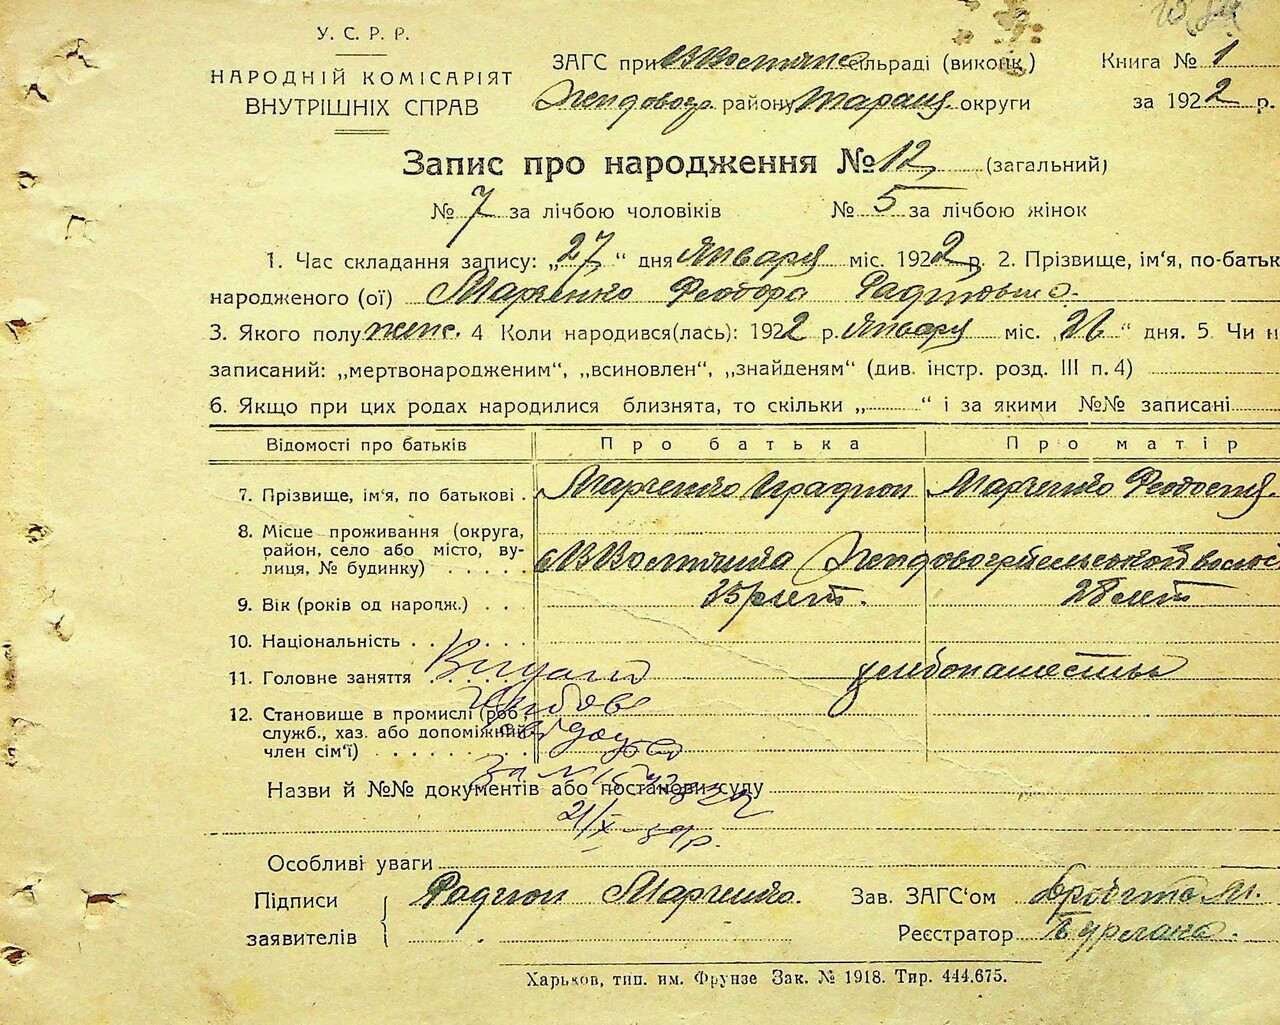 У. С. Р. Р.
НАРОДНІЙ КОМІСАРІЯТ
ВНУТРІШНІХ СПРАВ
ЗАГС при сільраді (виконк.)
району Таращ. округи
Книга № 1
за 1922 р.
Запис про народження № 12 (загальний)
№ 7 за лічбою чоловіків № 5 за лічбою жінок
1. Час складання запису: „27“ дня Января міс. 1922 р. 2. Прізвище, ім'я, по-батьк
народженого (ої) Марченко Феодора
3. Якого полу женс. 4 Коли народився(лась): 1922 р. Января міс. „26“ дня. 5. Чи н
записаний: „мертвонародженим“, „всиновлен“, „знайденям“ (див. інстр. розд. III п. 4)
6. Якщо при цих родах народилися близнята, то скільки „ “ і за якими №№ записані
Відомості про батьків Про батька Про матір
7. Прізвище, ім'я, по батькові . Марченко Марченко Феодосия
8. Місце проживання (округа,
район, село або місто, ву-
лиця, № будинку)
9. Вік (років од народж.) . . . лет. 28 лет
10. Національність . . . .
11. Головне заняття . . . .
12. Становище в промислі (роб.,
служб., хаз. або допоміжний
член сім'ї) . . . . . . . .
Назви й №№ документів або постанови суду
Особливі уваги
Підписи Родион Марченко. Зав. ЗАГС'ом
заявителів Реєстратор
Харьков, тип. им. Фрунзе Зак. № 1918. Тир. 444.675.